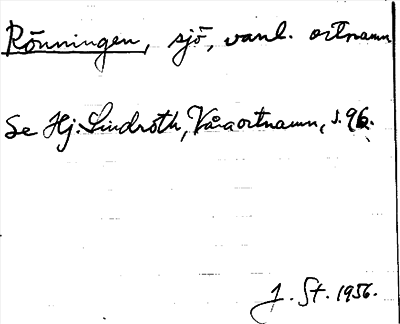 Rönningen, sjö, vanl. ortnamn
Se Hj. Lindroth, Våra ortnamn, s. 96.
J. St. 1956.